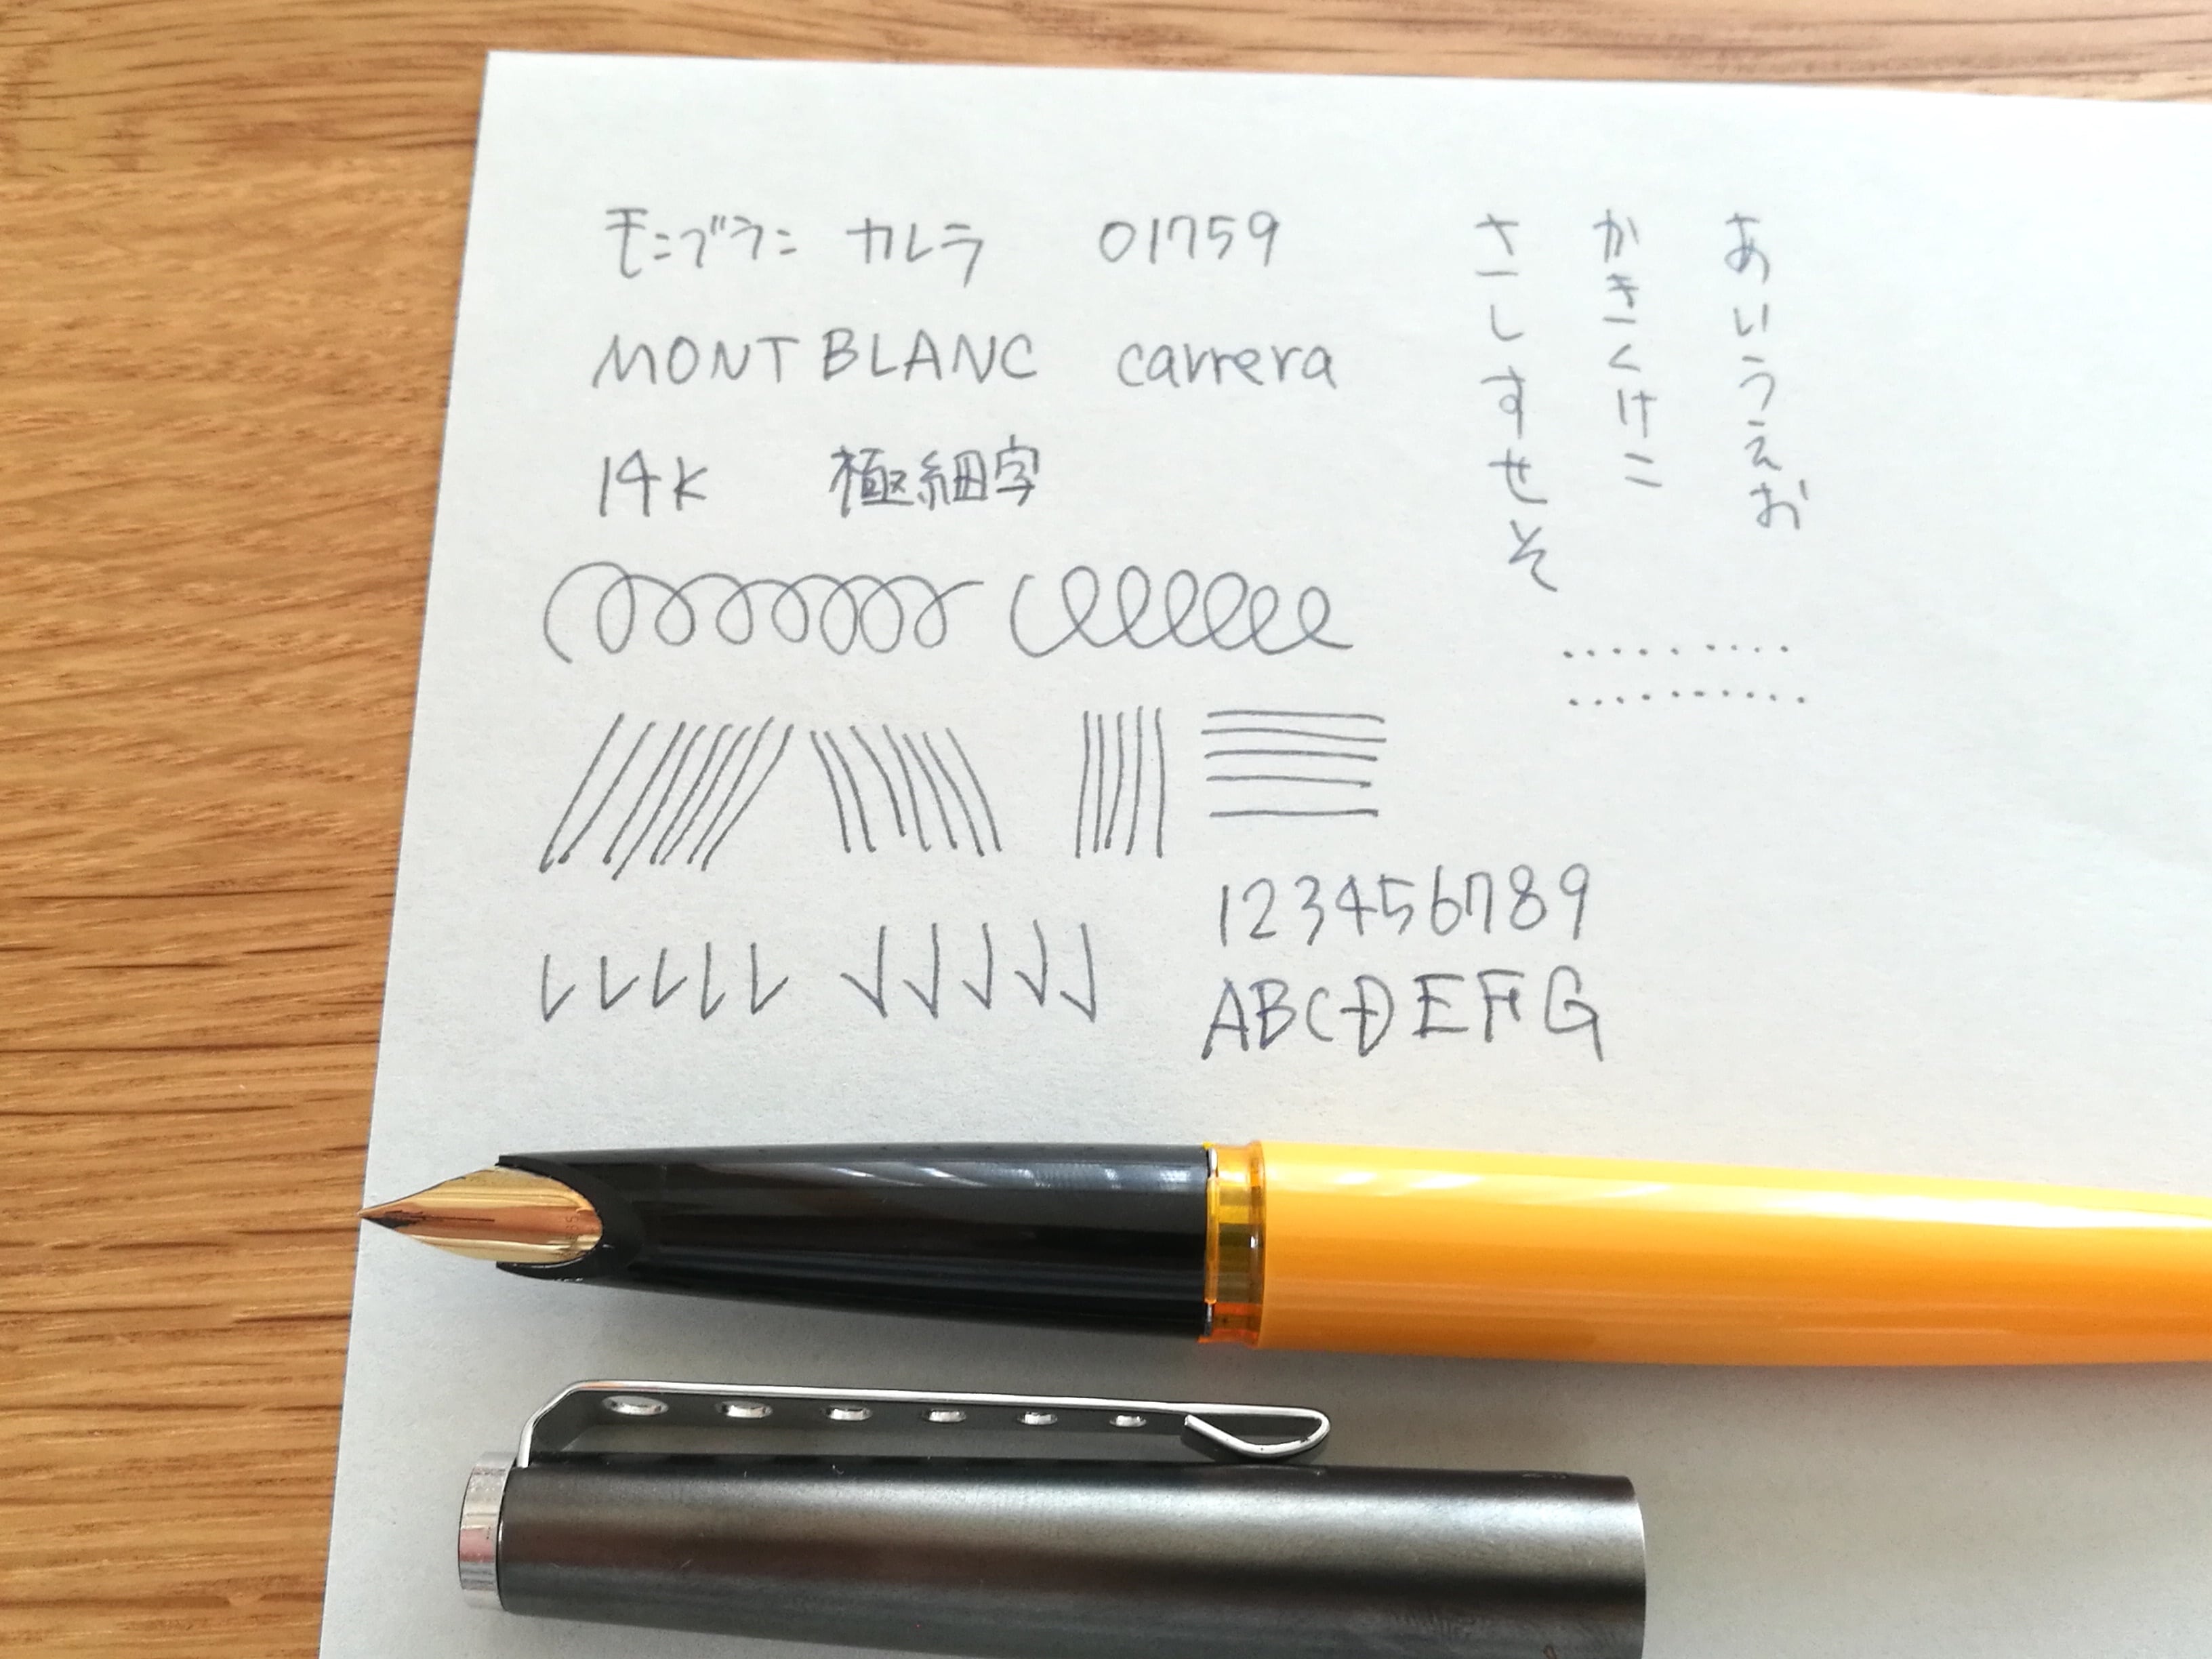 モンブラン カルラ 01759
MONT BLANC carrera
14K 極細字
あいうえお
かきくけこ
さしすせそ
123456789
ABCDEFG